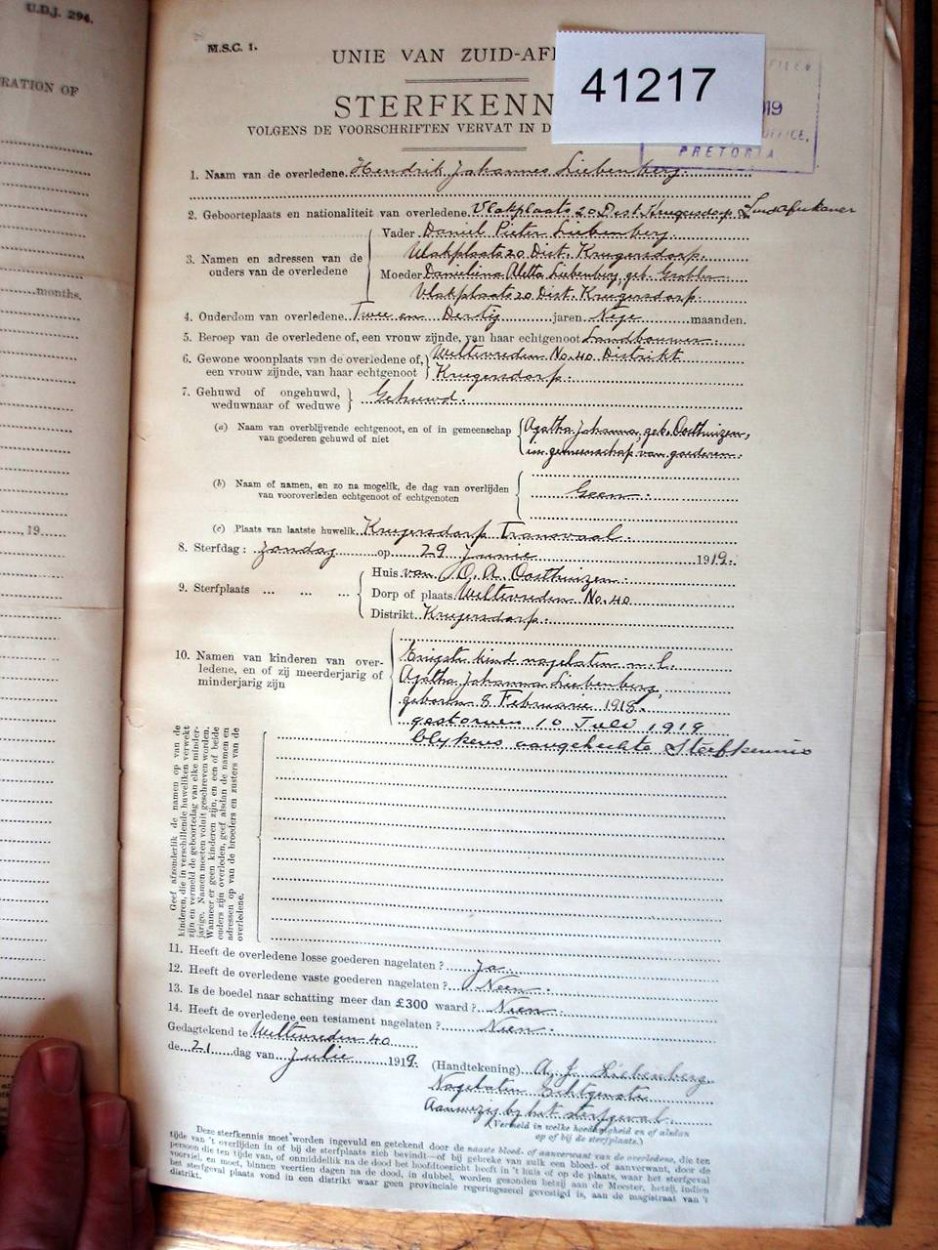 U.D.J. 294.
RATION OF
months.
19
M.S.C. 1.
UNIE VAN ZUID-AF
41217
STERFKENN
VOLGENS DE VOORSCHRIFTEN VERVAT IN D
19
PRETORIA
1. Naam van de overledene Hendrik Johannes Liebenberg
2. Geboorteplaats en nationaliteit van overledene. Vlakplaats 20 Dist. Krugersdorp
3. Namen en adressen van de ouders van de overledene
Vader Daniel Pieter Liebenberg.
Vlakplaats 20 Dist. Krugersdorp.
Moeder Danielina Aletta Liebenberg, geb. Grobler
Vlakplaats 20 Dist. Krugersdorp.
4. Ouderdom van overledene Twee en Dertig jaren Nege maanden.
5. Beroep van de overledene of, een vrouw zijnde, van haar echtgenoot Landbouwer.
6. Gewone woonplaats van de overledene of, een vrouw zijnde, van haar echtgenoot
Weltevreden No. 40 Distrikt
Krugersdorp.
7. Gehuwd of ongehuwd, weduwnaar of weduwe
Gehuwd.
(a) Naam van overblijvende echtgenoot, en of in gemeenschap van goederen gehuwd of niet
Agatha Johanna, geb. Oosthuizen,
in gemeenschap van goederen.
(b) Naam of namen, en zo na mogelik, de dag van overlijden van vooroverleden echtgenoot of echtgenoten
Geen.
(c) Plaats van laatste huwelik. Krugersdorp Transvaal.
8. Sterfdag: Zondag op 29 Junie 1919.
9. Sterfplaats ... ... ...
Huis van O. A. Oosthuizen.
Dorp of plaats Weltevreden No. 40
Distrikt Krugersdorp.
10. Namen van kinderen van overledene, en of zij meerderjarig of minderjarig zijn
Enigste kind nagelaten n.l.
Agatha Johanna Liebenberg,
geboren 8 Februarie 1918.
gestorwen 10 Julo 1919
blykens aangehechte Sterfkennis
Geef afzonderlik de namen op van de
kinderen, die in verschillende huweliken verwekt
zijn en vermeld de geboortedag van elke minder-
jarige. Namen moeten voluit geschreven worden.
Wanneer er geen kinderen zijn, en een of beide
ouders zijn overleden, geef alsdan de namen en
adressen op van de broeders en zusters van de
overledene.
11. Heeft de overledene losse goederen nagelaten ? Ja
12. Heeft de overledene vaste goederen nagelaten ? Neen.
13. Is de boedel naar schatting meer dan £300 waard ? Nien.
14. Heeft de overledene een testament nagelaten ? Nien.
Gedagtekend te Weltevreden 40
de 21 dag van Julie 1919.
(Handtekening) A. J. Liebenberg
Nagelaten Echtgenote
Aanwezig bij het sterfgeval
(Vermeld in welke hoedanigheid en of alsdan
op of bij de sterfplaats.)
Deze sterfkennis moet worden ingevuld en getekend door de naaste bloed- of aanverwant van de overledene, die ten
tijde van 't overlijden in of bij de sterfplaats zich bevindt—of bij gebreke van zulk een bloed- of aanverwant, door de
persoon die ten tijde van, of onmiddellik na de dood het hoofdtoezicht heeft in 't huis of op de plaats, waar het sterfgeval
voorviel, en moet, binnen veertien dagen na de dood, in dubbel, worden gezonden hetzij aan de Meester, hetzij, indien
het sterfgeval plaats vond in een distrikt waar geen provinciale regeringszetel gevestigd is, aan de magistraat van 't
distrikt.